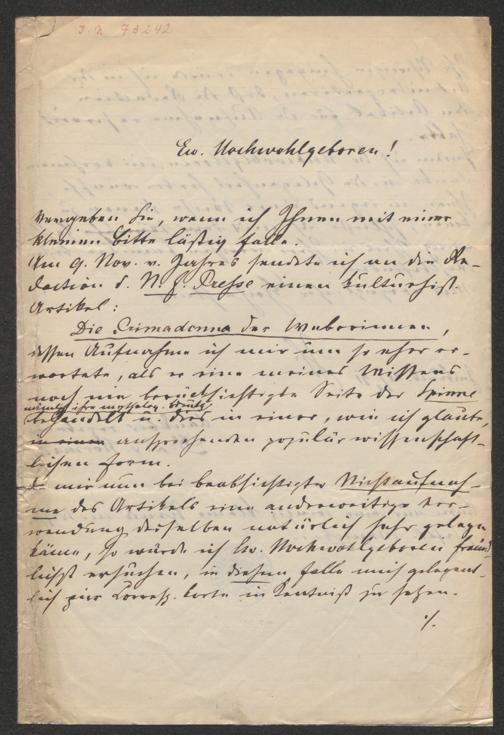 I. N. 73242
Ew. Hochwohlgeboren!
Vergeben Sie, wenn ich Ihnen mit einer
kleinen Bitte lästig falle.
Am 9. Nov. v. Jahres sendete ich an die Re-
daction d. N. f. Presse einen kulturhist.
Artikel:
Die Primadonna der Weberinnen,
dessen Aufnahme ich mir um so eher er-
wartete, als er eine meines Wissens
noch nie berücksichtigte Seite der Spinne
nämlich ihre mytholog.
behandelt u. dies in einer, wie ich glaube,
in einem ansprechenden populär wissenschaft-
lichen Form.
Da mir nun bei beabsichtigter Nichtaufnah-
me des Artikels eine anderweitige Ver-
wendung desselben natürlich sehr gelegen
käme, so würde ich Ew. Hochwohlgeboren freund
lichst ersuchen, in diesem Falle mich gelegent-
lich per Corresp. Karte in Kenntniß zu setzen.
./.